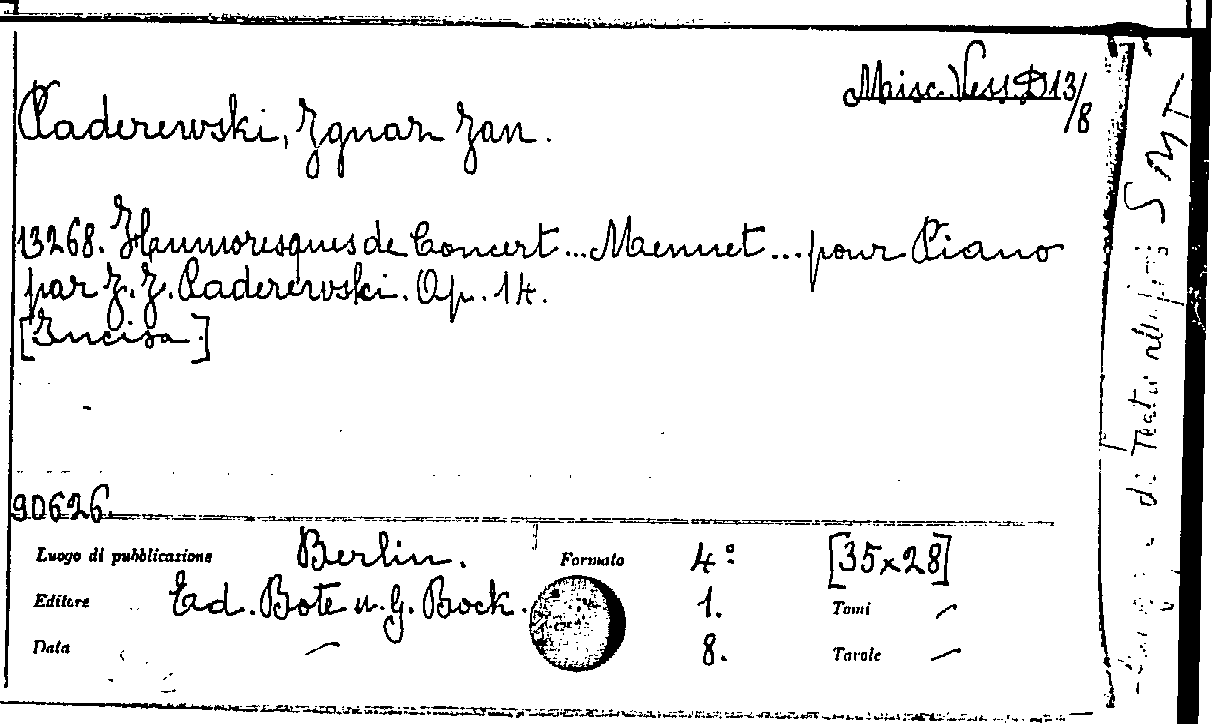 Misc. Vess. D13/8
Paderewski, Ignaz Jan.
13268. Humoresques de Concert... Menuet... pour Piano
par I. I. Paderewski. Op. 14.
[Incisa.]
90626.
Luogo di pubblicazione Berlin. Formato 4° [35x28]
Editore Ed. Bote u. G. Bock. 1. Tomi –
Data – 8. Tavole –
di Teatri SMT